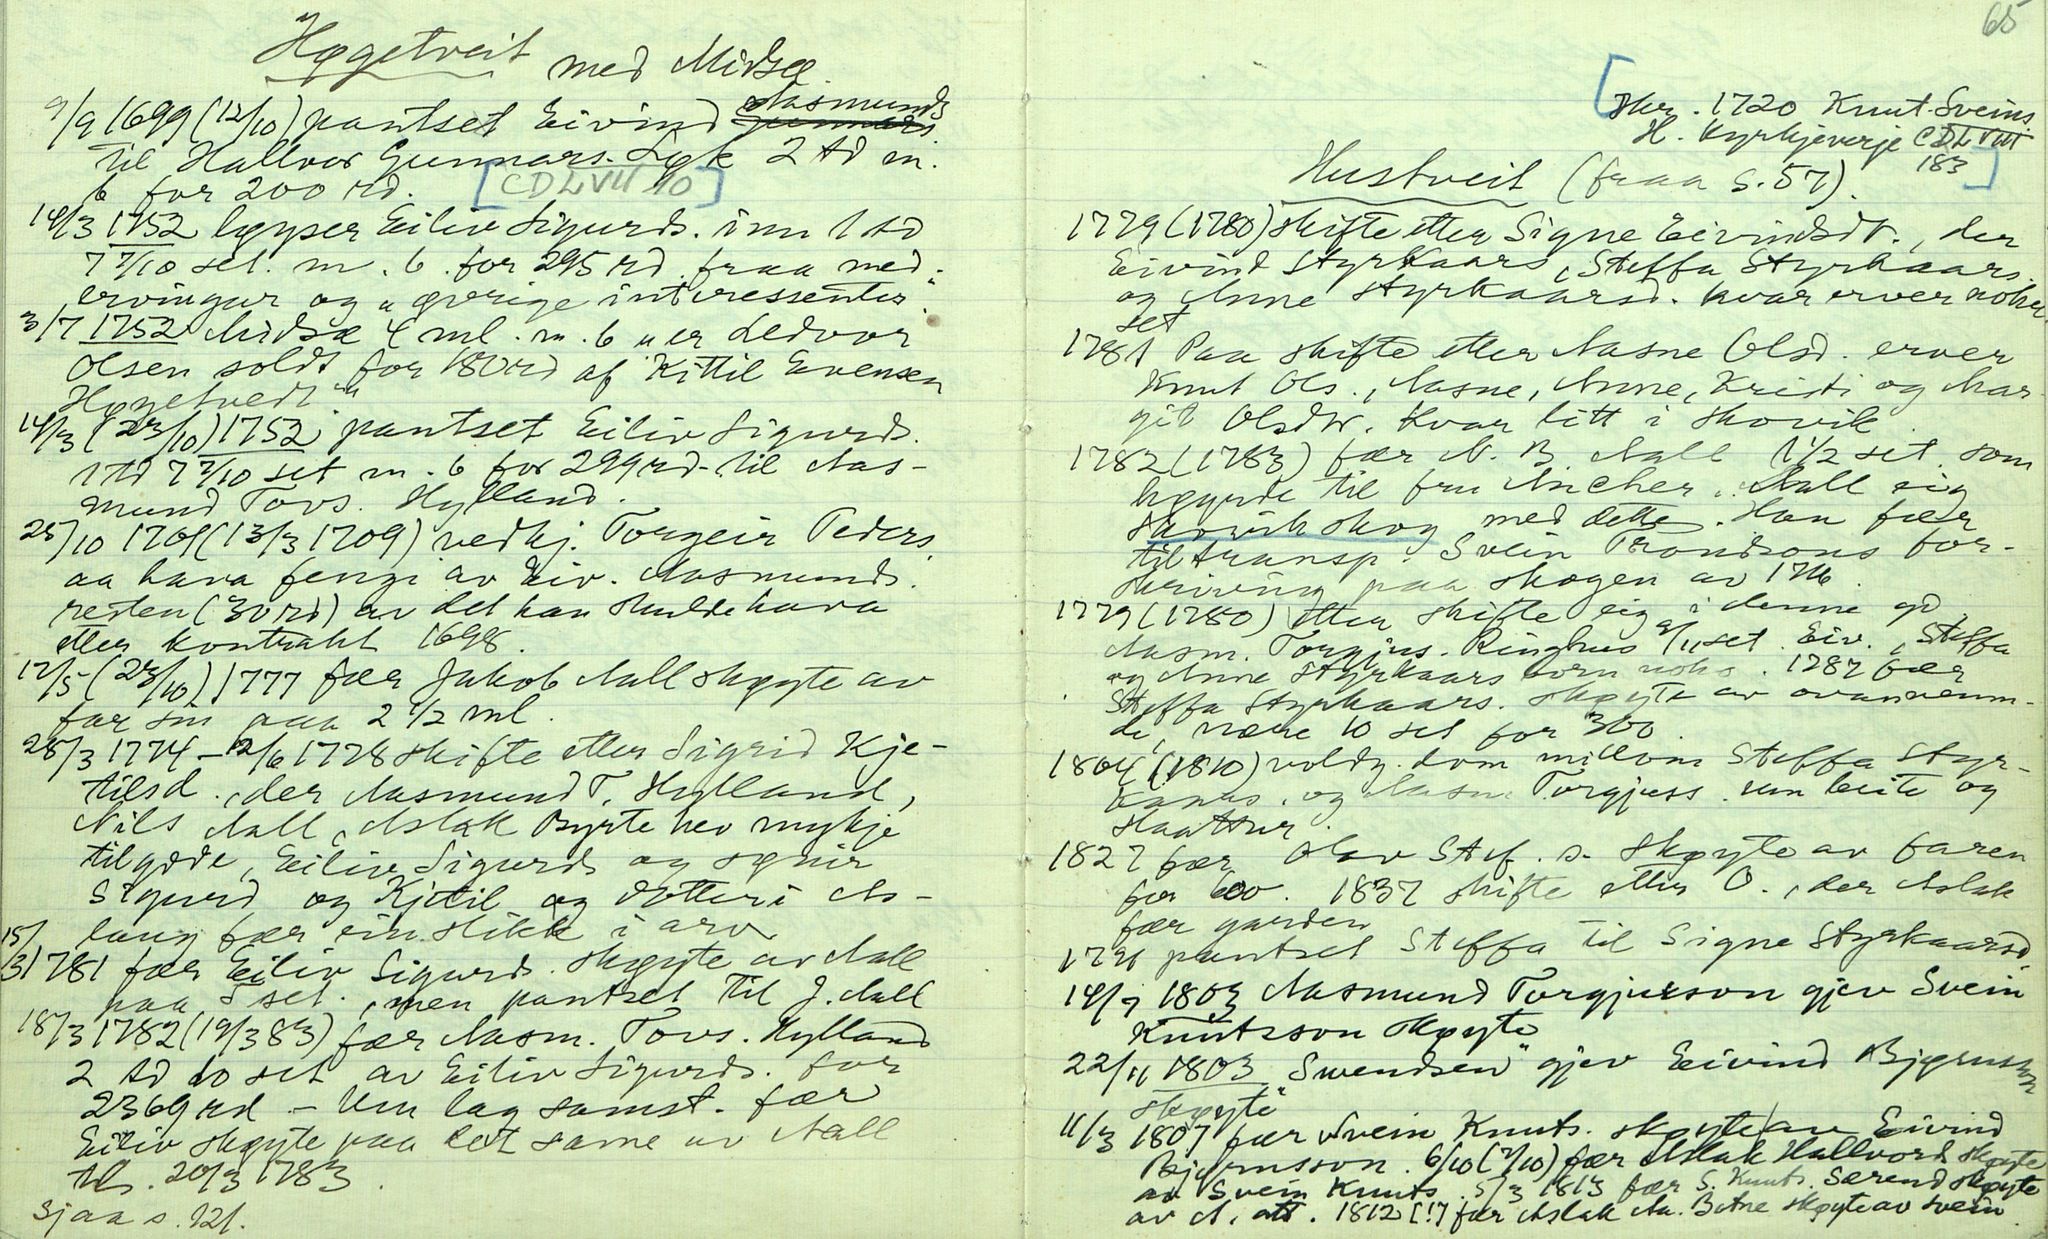 Høgetveit med Midsæ
9/9 1699 (12/10) pantset Eivind Aasmunds
til Hallvor Gunnars. Løk 2 td m.
b for 200 rd. [CDLVII 10]
14/3 1752 løyser Eiliv Sigurds. inn 1 td
7 7/10 set. m. b. for 295 rd. fraa med-
ervingar og "øvrige interessenter"
3/7 1752 Midsæ 4 ml. m. b "er Ledvor
Olsen soldt for 180 rd af Kittil Evensen
Høgetvedt"
14/3 (23/10) 1752 pantset Eiliv Sigurds.
1 td 7 7/10 set m. b for 299 rd. til Aas-
mund Tovs. Hylland.
25/10 1701 (13/3 1709) vedkj. Torgeir Peders.
aa hava fengi av Eiv. Aasmunds.
resten (30 rd) av det han skulde hava
etter kontrakt 1698.
12/5 (23/10) 1777 fær Jakob Aall skøyte av
far sin paa 2 1/2 ml.
28/3 1774 - 12/6 1778 skifte etter Sigrid Kje-
tilsd., der Aasmund T. Hylland,
Nils Aall, Aslak Byrte hev mykje
tilgode, Eiliv Sigurds og sønir
Sigurd og Kjetil og dotteri As-
laug fær ein slikk i arv
15/3 1781 fær Eiliv Sigurds. skøyte av Aall
paa 5 set., men pantset til J. Aall
18/3 1782 (19/3 83) fær Aasm. Tovs. Hylland
2 td 10 set av Eiliv Sigurds. for
2369 rd - Um lag samst. fær
Eiliv skøyte paa det same av Aall
tls. 20/3 1783.
Sjaa s. 121.
65
[Skr. 1720 Knut Sveins
H. kyrkjeverje CDLVIII
183]
Hustveit (fraa s. 57).
1779 (1780) skifte etter Signe Eivindsdt., der
Eivind Styrkaars, Steffa Styrkaars.
og Anne Styrkaarsd. kvar erver nokre
set
1781 Paa skifte etter Aasne Olsd. erver
Knut Ols., Aasne, Anne, Kristi og Mar-
git Olsdtr. kvar litt i Skovik.
1782 (1783) fær N. B. Aall 1 1/2 set. som
høyrde til fru Ancher. Aall eig
Skovik skog med dette. Han fær
til transp. Svein Trondsons for-
skriving paa skogen av
1779 (1780) etter skifte eig i denne gd
Aasm. Torgjus. Ringhus set. Eiv., Steffa
og Anne Styrkaars born noko. 1787 fær
Steffa Styrkaars. skøyte av ovannemn-
de, nære 10 set for 300.
1804 (1810) voldg. dom millom Steffa Styr-
kaars. og Aasm. Torgjuss. um beite og
slaattur.
1827 fær Olav Stef. s. skøyte av faren
for 600. 1837 skifte etter O., der Aslak
fær garden
pantset Steffa til Signe Styrkaarsd
14/7 1803 Aasmund Torgjusson gjev Svein
Knutsson skøyte
22/11 1803 "Swendsen" gjev Eivind Bjørnsson
skøyte
11/3 1807 fær Svein Knuts. skøyte av Eivind
Bjørnsson. 6/10 (7/10) fær Aslak Hallvords skøyte
av Svein Knuts. 5/3 1813 fær S. Knuts. Særend skøyte
av A. att. 1812 [!] fær Aslak Aa. Botne skøyte av Svein